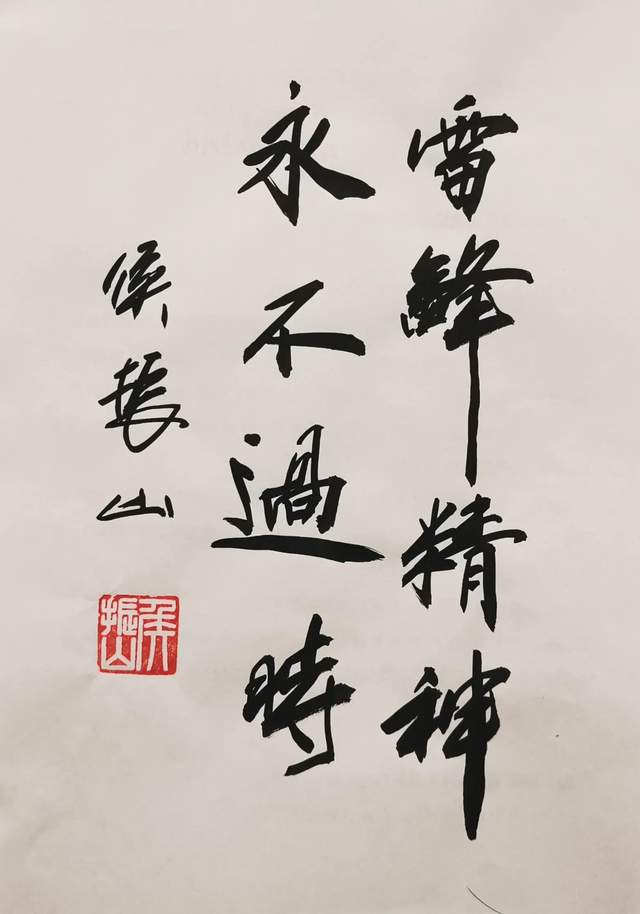 雷鋒精神
永不過時
侯振山
侯振山